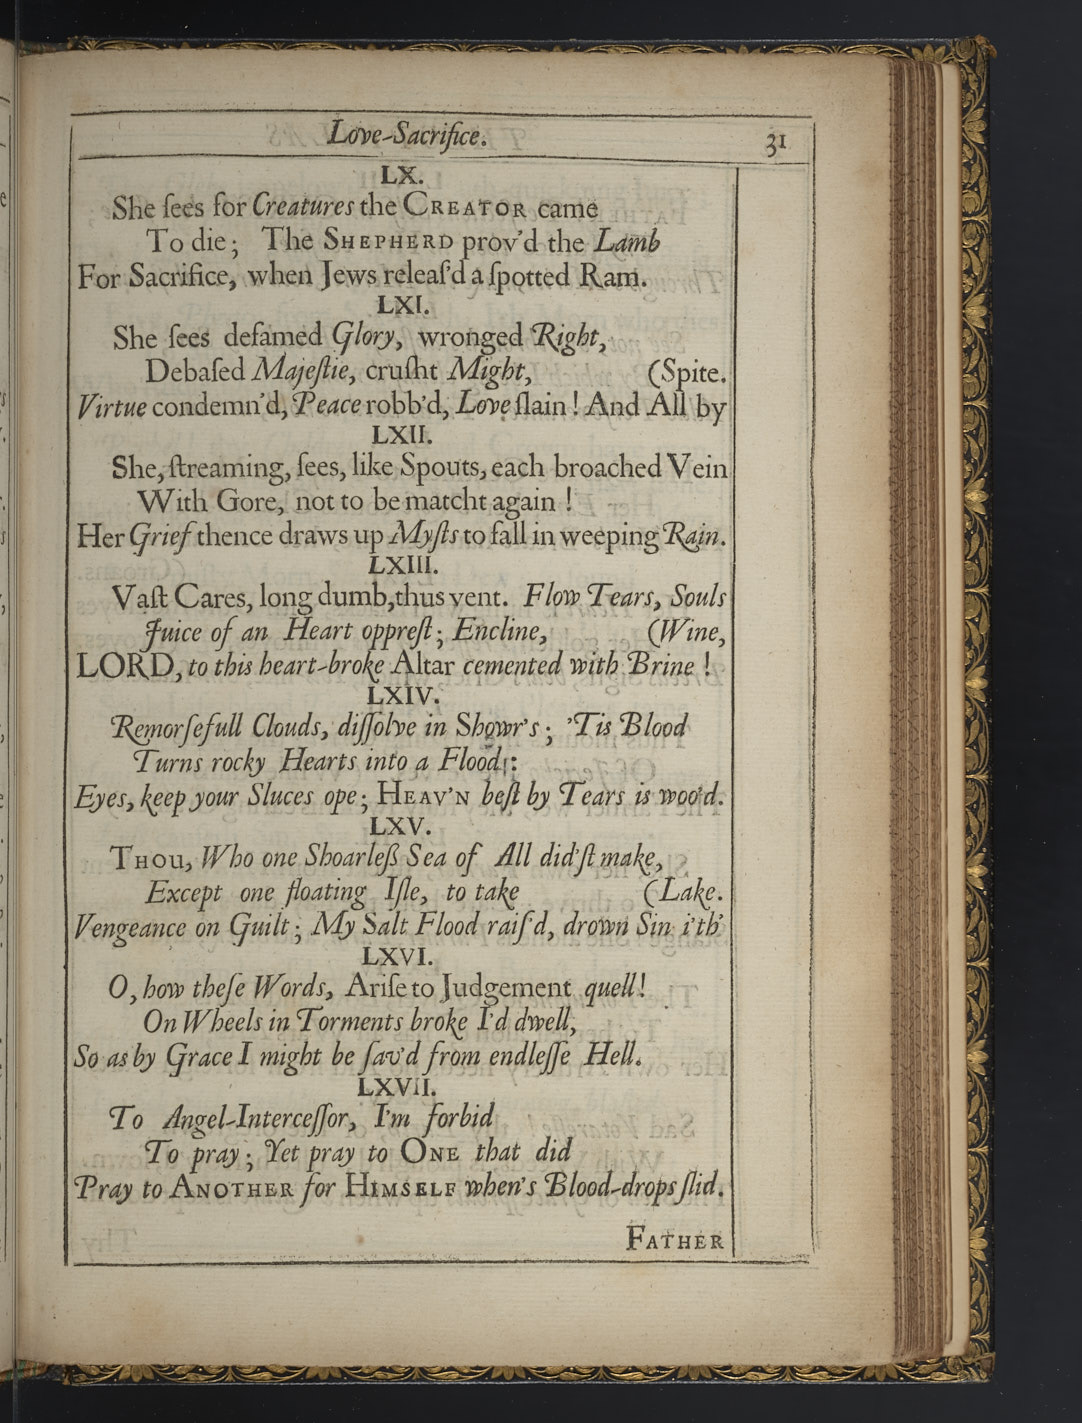 Love-Sacrifice.
31
LX.
She ſees for Creatures the CREATOR came
To die; The SHEPHERD prov'd the Lamb
For Sacrifice, when Jews releaſ'd a ſpotted Ram.
LXI.
She ſees defamed Glory, wronged Right,
Debaſed Majeſtie, cruſht Might, (Spite.
Virtue condemn'd, Peace robb'd, Love ſlain! And All by
LXII.
She, ſtreaming, ſees, like Spouts, each broached Vein
With Gore, not to be matcht again !
Her Grief thence draws up Myſts to fall in weeping Rain.
LXIII.
Vaſt Cares, long dumb, thus vent. Flow Tears, Souls
Juice of an Heart oppreſt; Encline, (Wine,
LORD, to this heart-broke Altar cemented with Brine !
LXIV.
Remorſefull Clouds, diſſolve in Showr's; 'Tis Blood
Turns rocky Hearts into a Flood:
Eyes, keep your Sluces ope; HEAV'N beſt by Tears is woo'd.
LXV.
THOU, Who one Shoarleß Sea of All did'ſt make,
Except one floating Iſle, to take (Lake.
Vengeance on Guilt; My Salt Flood raiſ'd, drown Sin i'th'
LXVI.
O, how theſe Words, Ariſe to Judgement quell!
On Wheels in Torments broke I'd dwell,
So as by Grace I might be ſav'd from endleſſe Hell.
LXVII.
To Angel-Interceſſor, I'm forbid
To pray; Yet pray to ONE that did
Pray to ANOTHER for HIMSELF when's Blood-drops ſlid.
FATHER